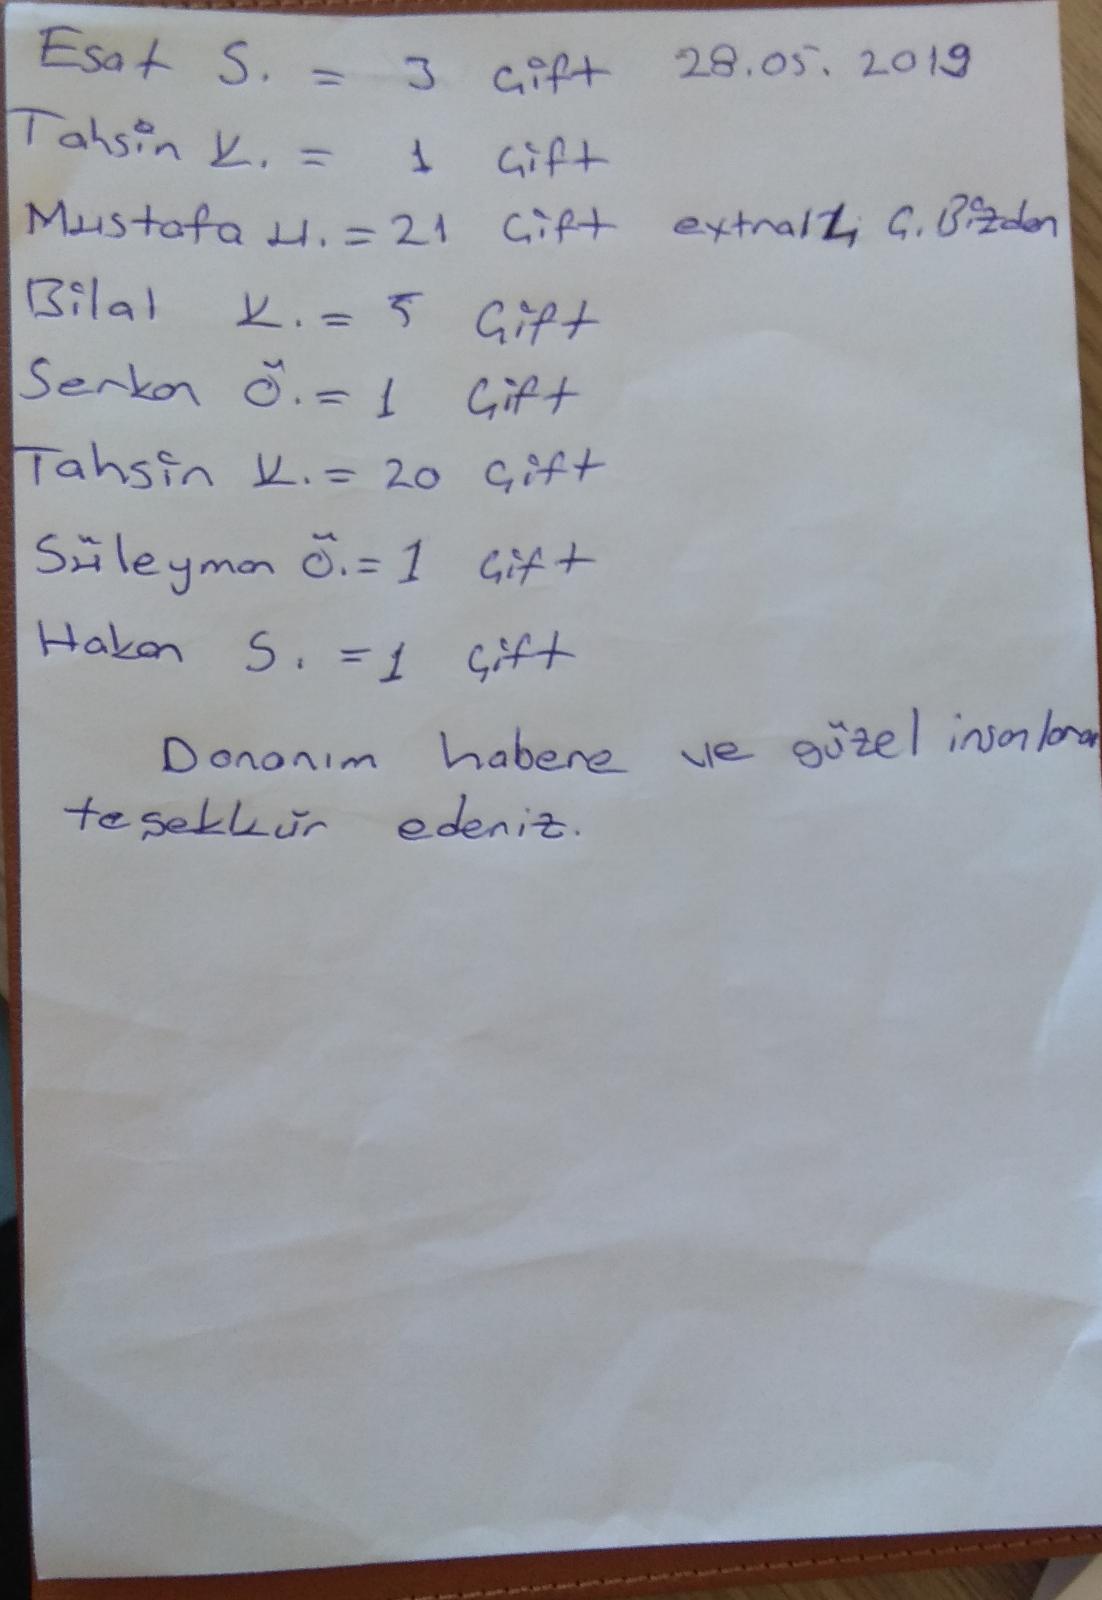 Esat S. = 3 Çift 28.05.2019
Tahsin K. = 1 Çift
Mustafa U. = 21 Çift extra 1 Ç. Bizden
Bilal K. = 5 Çift
Serkan Ö. = 1 Çift
Tahsin K. = 20 Çift
Süleyman Ö. = 1 Çift
Hakan S. = 1 Çift
Donanım habere ve güzel insanlara
teşekkür ederiz.